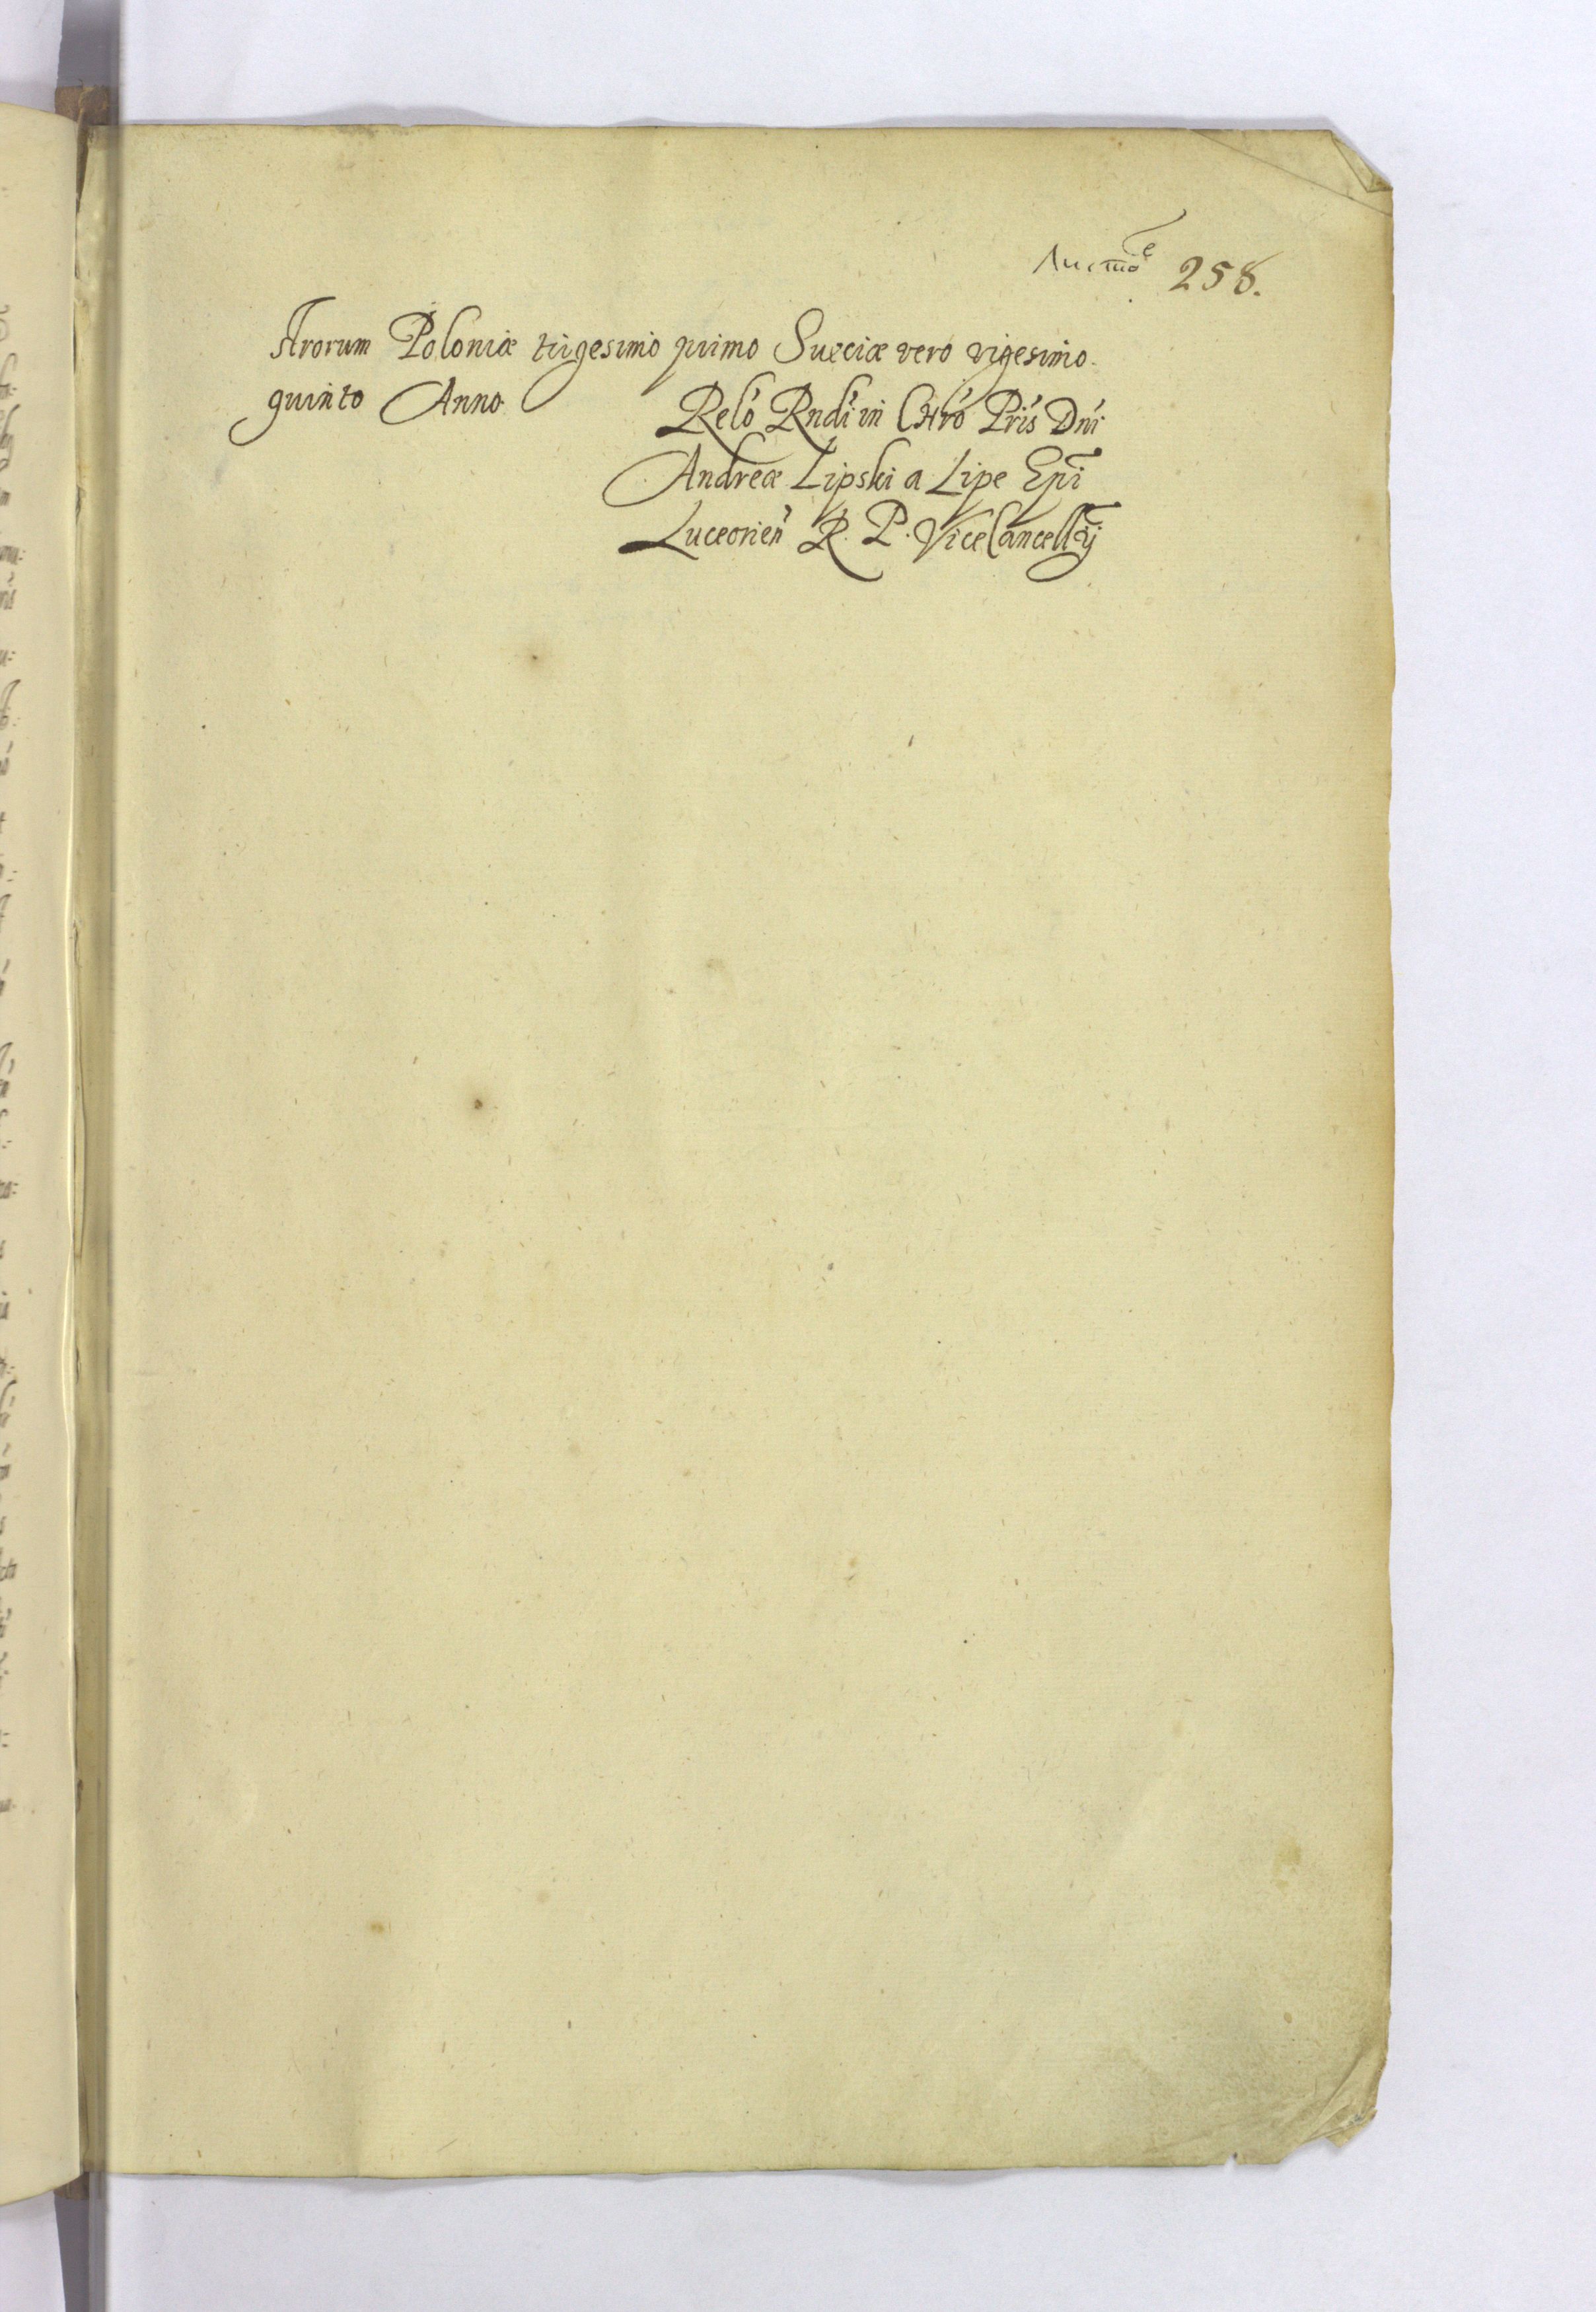 Листоє 258.
Nrorum Poloniæ trigesimo primo Sueciæ vero vigesimo
quinto Anno
Relo Rndi in Chro Pris Dni
Andreæ Lipski a Lipe Epi
Luceorien R. P. ViceCancellrij